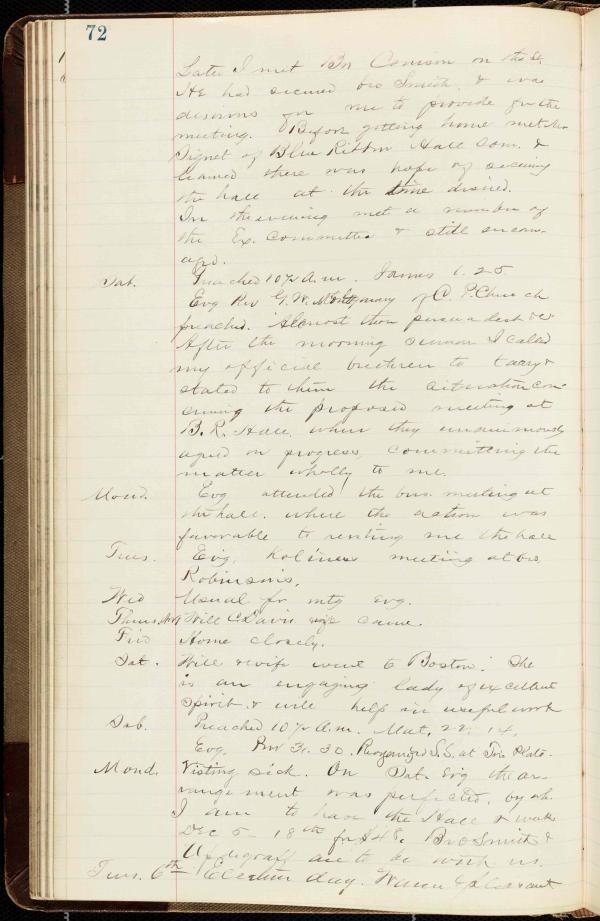 72
Later I met Bro Cenison on the St.
He had secured bro Smith & was
desirous for me to provide for the
meeting. Before getting home met Mr
Tignet of Blue Ribbon Hall Com. &
learned there was hope of securing
the hall at the time desired.
In the evening met a number of
the Ex. Committee & still encour-
aged.
Sab. Preached 10½ A.m. James 1.25.
Evg Rev G. W. Montgomery of C. P. Church
preached. "Almost thou persuadest &c
After the morning sermon I called
my official brethren to tarry &
stated to them the situation con-
cerning the proposed meeting at
B. R. Hall, when they unanimously
agreed on progress, committing the
matter wholly to me.
Mond. Evg attended the bus. meeting at
the hall. where the action was
favorable to renting me the hall
Tues. Evg. holiness meeting at bro.
Robinson's.
Wed Usual pr mtg evg.
Thurs. Will C Davis wife came.
Frid Home closely.
Sat. Will & wife went to Boston. She
is an engaging lady of excellent
spirit & will help in useful work
Sab. Preached 10½ A.m. Mat. 22.14.
Evg. Prov 31.30. Reorganized S.S. at Plato.
Mond. Visting sick. On Sat. evg the ar-
rangement was perfected, by wh.
I am to have the Hall 2 weeks
Dec 5 - 18th for $48. Bro Smith &
Updegraff are to be with us.
Tues. 6th Election day. Warm & pleasant